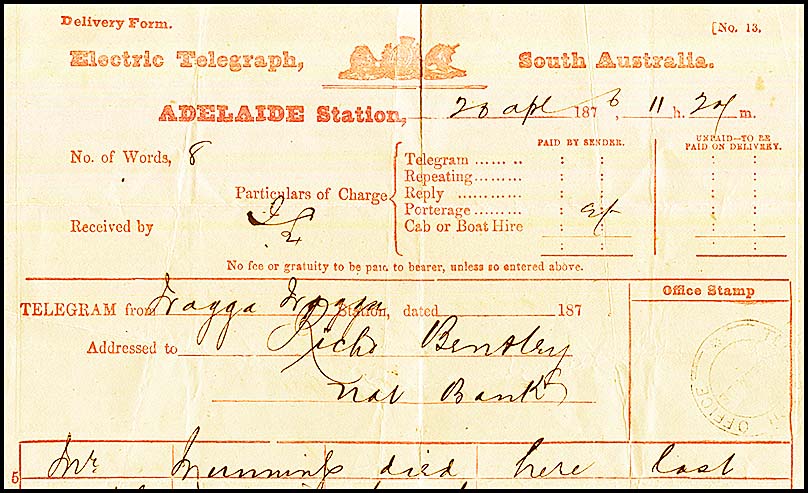 Delivery Form.
[No. 13.
Electric Telegraph,
South Australia.
ADELAIDE Station, 28 apl 1876, 11 h. 24 m.
No. of Words, 8
Particulars of Charge
PAID BY SENDER.
UNPAID—TO BE PAID ON DELIVERY.
Telegram
Repeating
Reply
Porterage
Cab or Boat Hire
Received by
No fee or gratuity to be paid to bearer, unless so entered above.
TELEGRAM from Wagga Wagga Station, dated 187
Office Stamp
Addressed to Richd Bentley
Nat Bank
OFFICE
5 Mr died here last